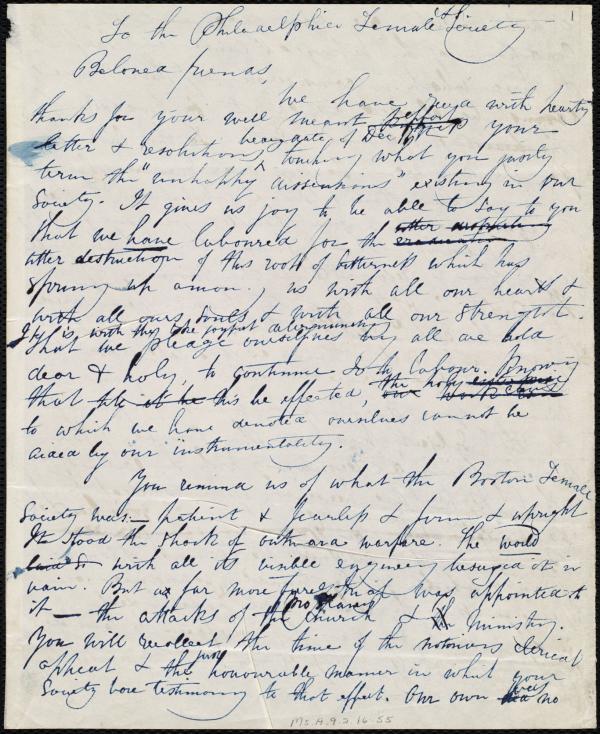 To the Philadelphia Female A. S. Society
1
Beloved friends,
We have recd with hearty
thanks for your well meant your
letter & resolutions, bearing date of Dec touching what you justly
term the "unhappy dissensions" existing in our
Society. It gives us joy to be able to say to you
that we have laboured for the
utter destruction of this root of bitterness which has
sprung up among us with all our hearts &
with all our souls & with all our strength.
It is with the joyful determination
that we pledge ourselves by all we hold
dear & holy, to continue so to labour. Knowing
that this be effected, the holy cause
to which we have devoted ourselves cannot be
aided by our instrumentality.
You remind us of what the Boston Female
Society was — patient & fearless & firm & upright
It stood the shock of outward warfare. The world
with all its visible enginery besieged it in
vain. But a far more fierce trial was appointed to
it — the attacks of the pro slavery Church & ministry.
You will recollect the time of the notorious clerical
appeal & the just honourable manner in what your
Society bore testimony to that effect. Our own was no
Ms.A.9.2.16.55